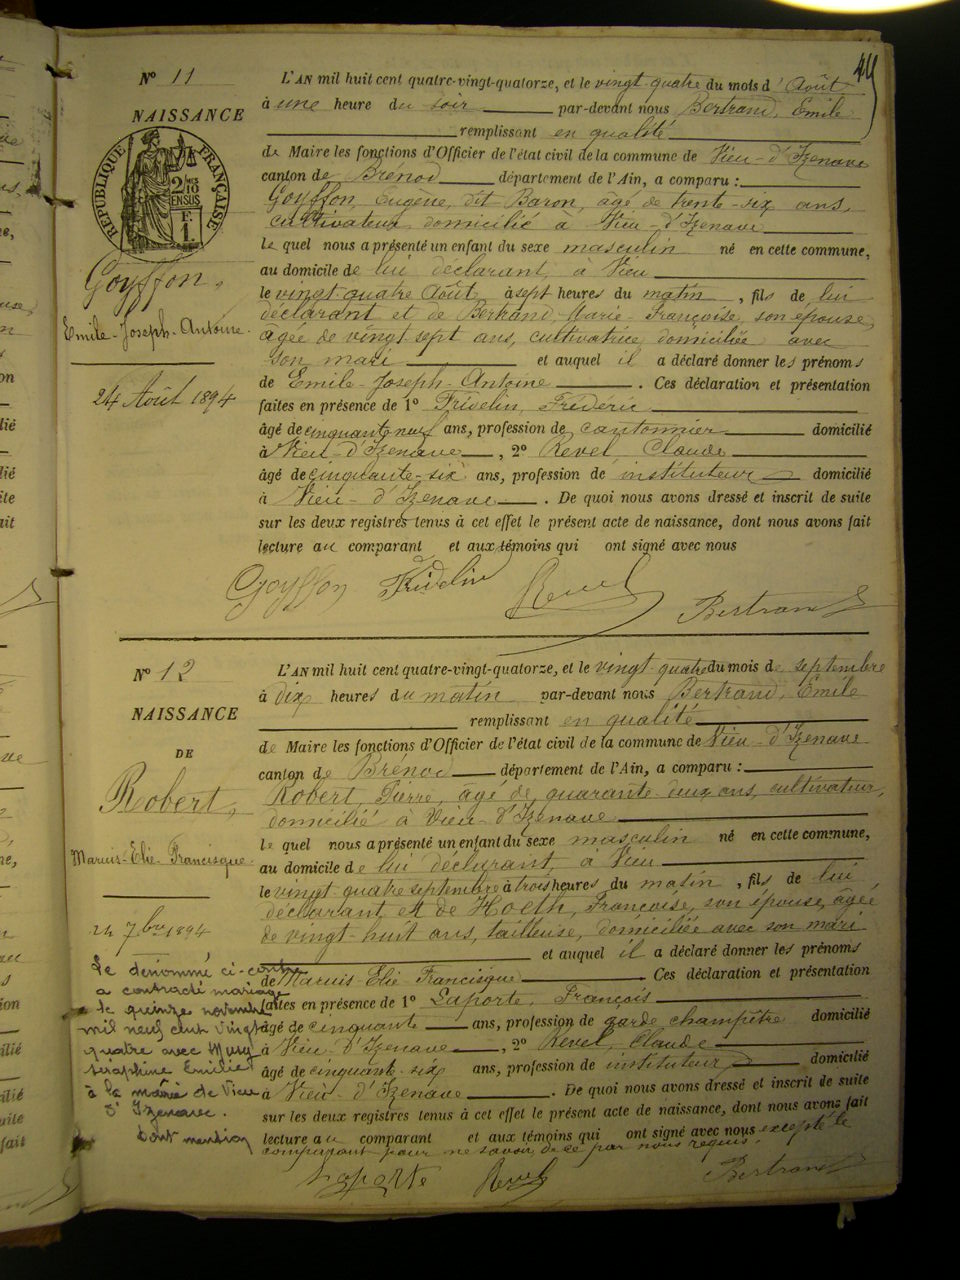 44
N° 11
NAISSANCE
RÉPUBLIQUE FRANÇAISE
2/10 EN SUS
F. 1
Goyffon,
Emile-Joseph-Antoine.
24 Août 1894
L'AN mil huit cent quatre-vingt-quatorze, et le vingt-quatre du mois d'Août
à une heure du soir par-devant nous Bertrand, Emile
remplissant en qualité
de Maire les fonctions d'Officier de l'état civil de la commune de Vieu-d'Izenave
canton de Brenod département de l'Ain, a comparu :
Goyffon, Eugène, dit Baron, âgé de trente-six ans,
cultivateur domicilié à Vieu-d'Izenave
le quel nous a présenté un enfant du sexe masculin né en cette commune,
au domicile de lui déclarant, à Vieu
le vingt-quatre Août à sept heures du matin, fils de lui
déclarant et de Bertrand, Marie-Françoise, son épouse,
âgée de vingt sept ans, cultivatrice, domiciliée avec
son mari et auquel il a déclaré donner les prénoms
de Emile-Joseph-Antoine. Ces déclaration et présentation
faites en présence de 1° Fridelin, Frédéric
âgé de cinquante neuf ans, profession de cantonnier domicilié
à Vieu-d'Izenave, 2° Revel, Claude
âgé de cinquante-six ans, profession de instituteur domicilié
à Vieu-d'Izenave. De quoi nous avons dressé et inscrit de suite
sur les deux registres tenus à cet effet le présent acte de naissance, dont nous avons fait
lecture au comparant et aux témoins qui ont signé avec nous
Goyffon Fridelin Revel Bertrand
N° 12
NAISSANCE
DE
Robert,
Marius-Elie-Francisque.
24 7bre 1894
Le dénommé ci-contre
a contracté mariage
le quinze novembre
mil neuf cent vingt
quatre avec
Séraphine Emilie
à la mairie de Vieu
d'Izenave.
Dont mention
L'AN mil huit cent quatre-vingt-quatorze, et le vingt-quatre du mois de septembre
à dix heures du matin par-devant nous Bertrand, Emile
remplissant en qualité
de Maire les fonctions d'Officier de l'état civil de la commune de Vieu-d'Izenave
canton de Brenod département de l'Ain, a comparu :
Robert, Pierre, âgé de quarante-deux ans, cultivateur,
domicilié à Vieu-d'Izenave
le quel nous a présenté un enfant du sexe masculin né en cette commune,
au domicile de lui déclarant, à Vieu
le vingt quatre septembre à trois heures du matin, fils de lui
déclarant, et de Hoeth, Françoise, son épouse, âgée
de vingt-huit ans, tailleuse, domiciliée avec son mari
et auquel il a déclaré donner les prénoms
de Marius-Elie Francisque Ces déclaration et présentation
faites en présence de 1° Laporte, François
âgé de cinquante ans, profession de garde champêtre domicilié
à Vieu-d'Izenave, 2° Revel, Claude
âgé de cinquante-six ans, profession de instituteur domicilié
à Vieu-d'Izenave. De quoi nous avons dressé et inscrit de suite
sur les deux registres tenus à cet effet le présent acte de naissance, dont nous avons fait
lecture au comparant et aux témoins qui ont signé avec nous excepté le
comparant pour ne savoir de ce par nous requis.
Laporte Revel Bertrand